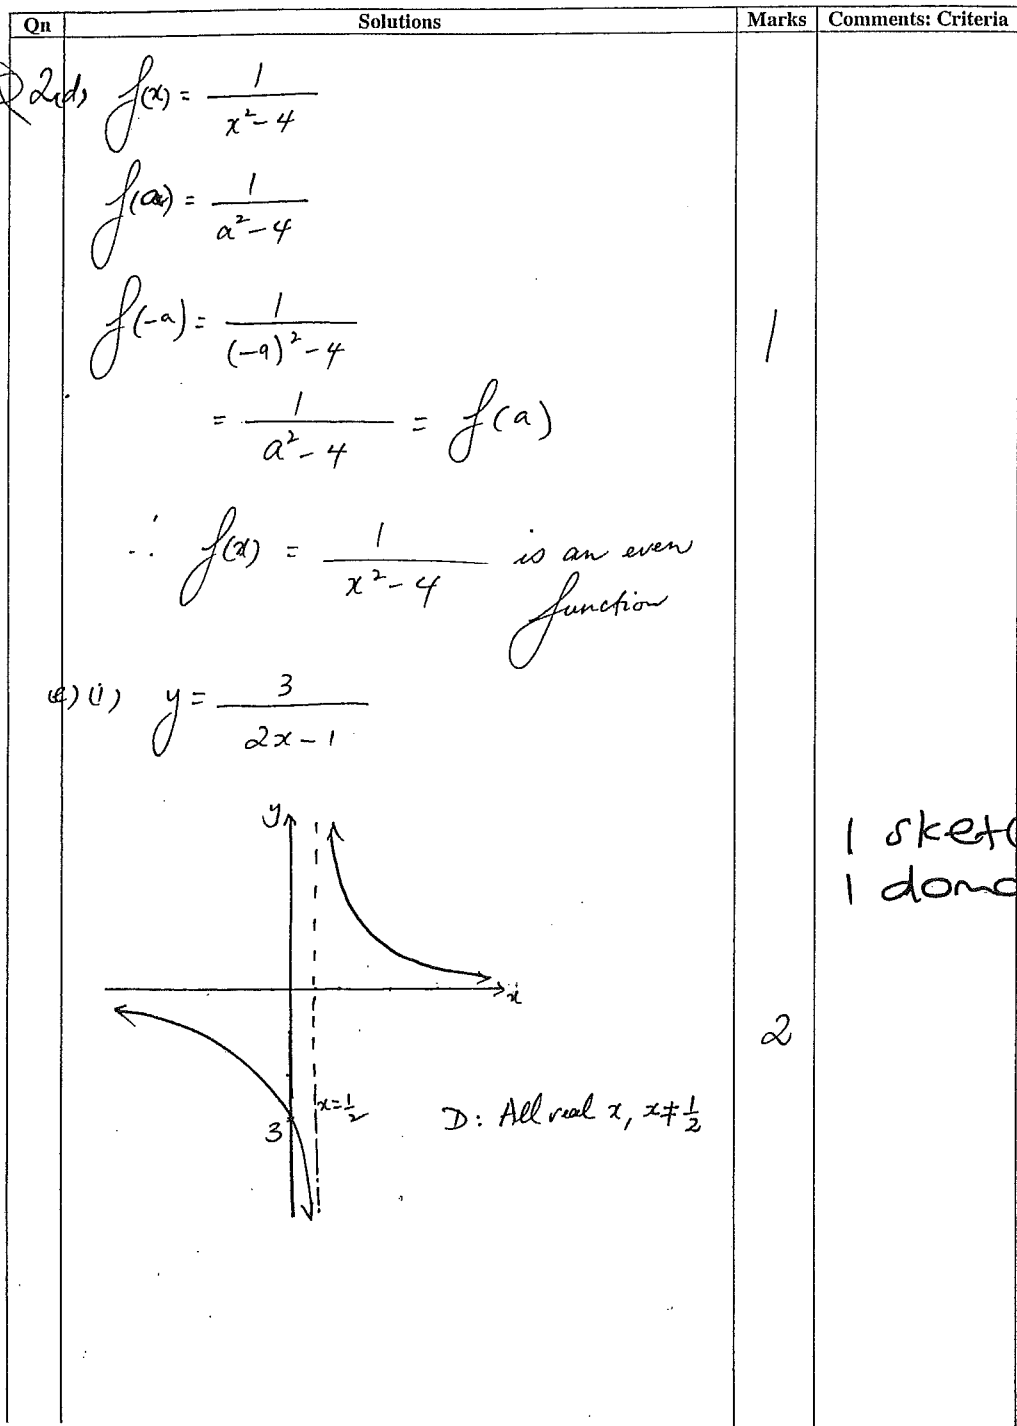 Qn Solutions Marks Comments: Criteria
Q2(d) f(x) = 1/(x² - 4)
f(a) = 1/(a² - 4)
f(-a) = 1/((-a)² - 4)
1
= 1/(a² - 4) = f(a)
∴ f(x) = 1/(x² - 4) is an even
function
(e) (i) y = 3/(2x - 1)
y
1 sketc
1 doma
x
2
x = 1/2
3
D: All real x, x ≠ 1/2